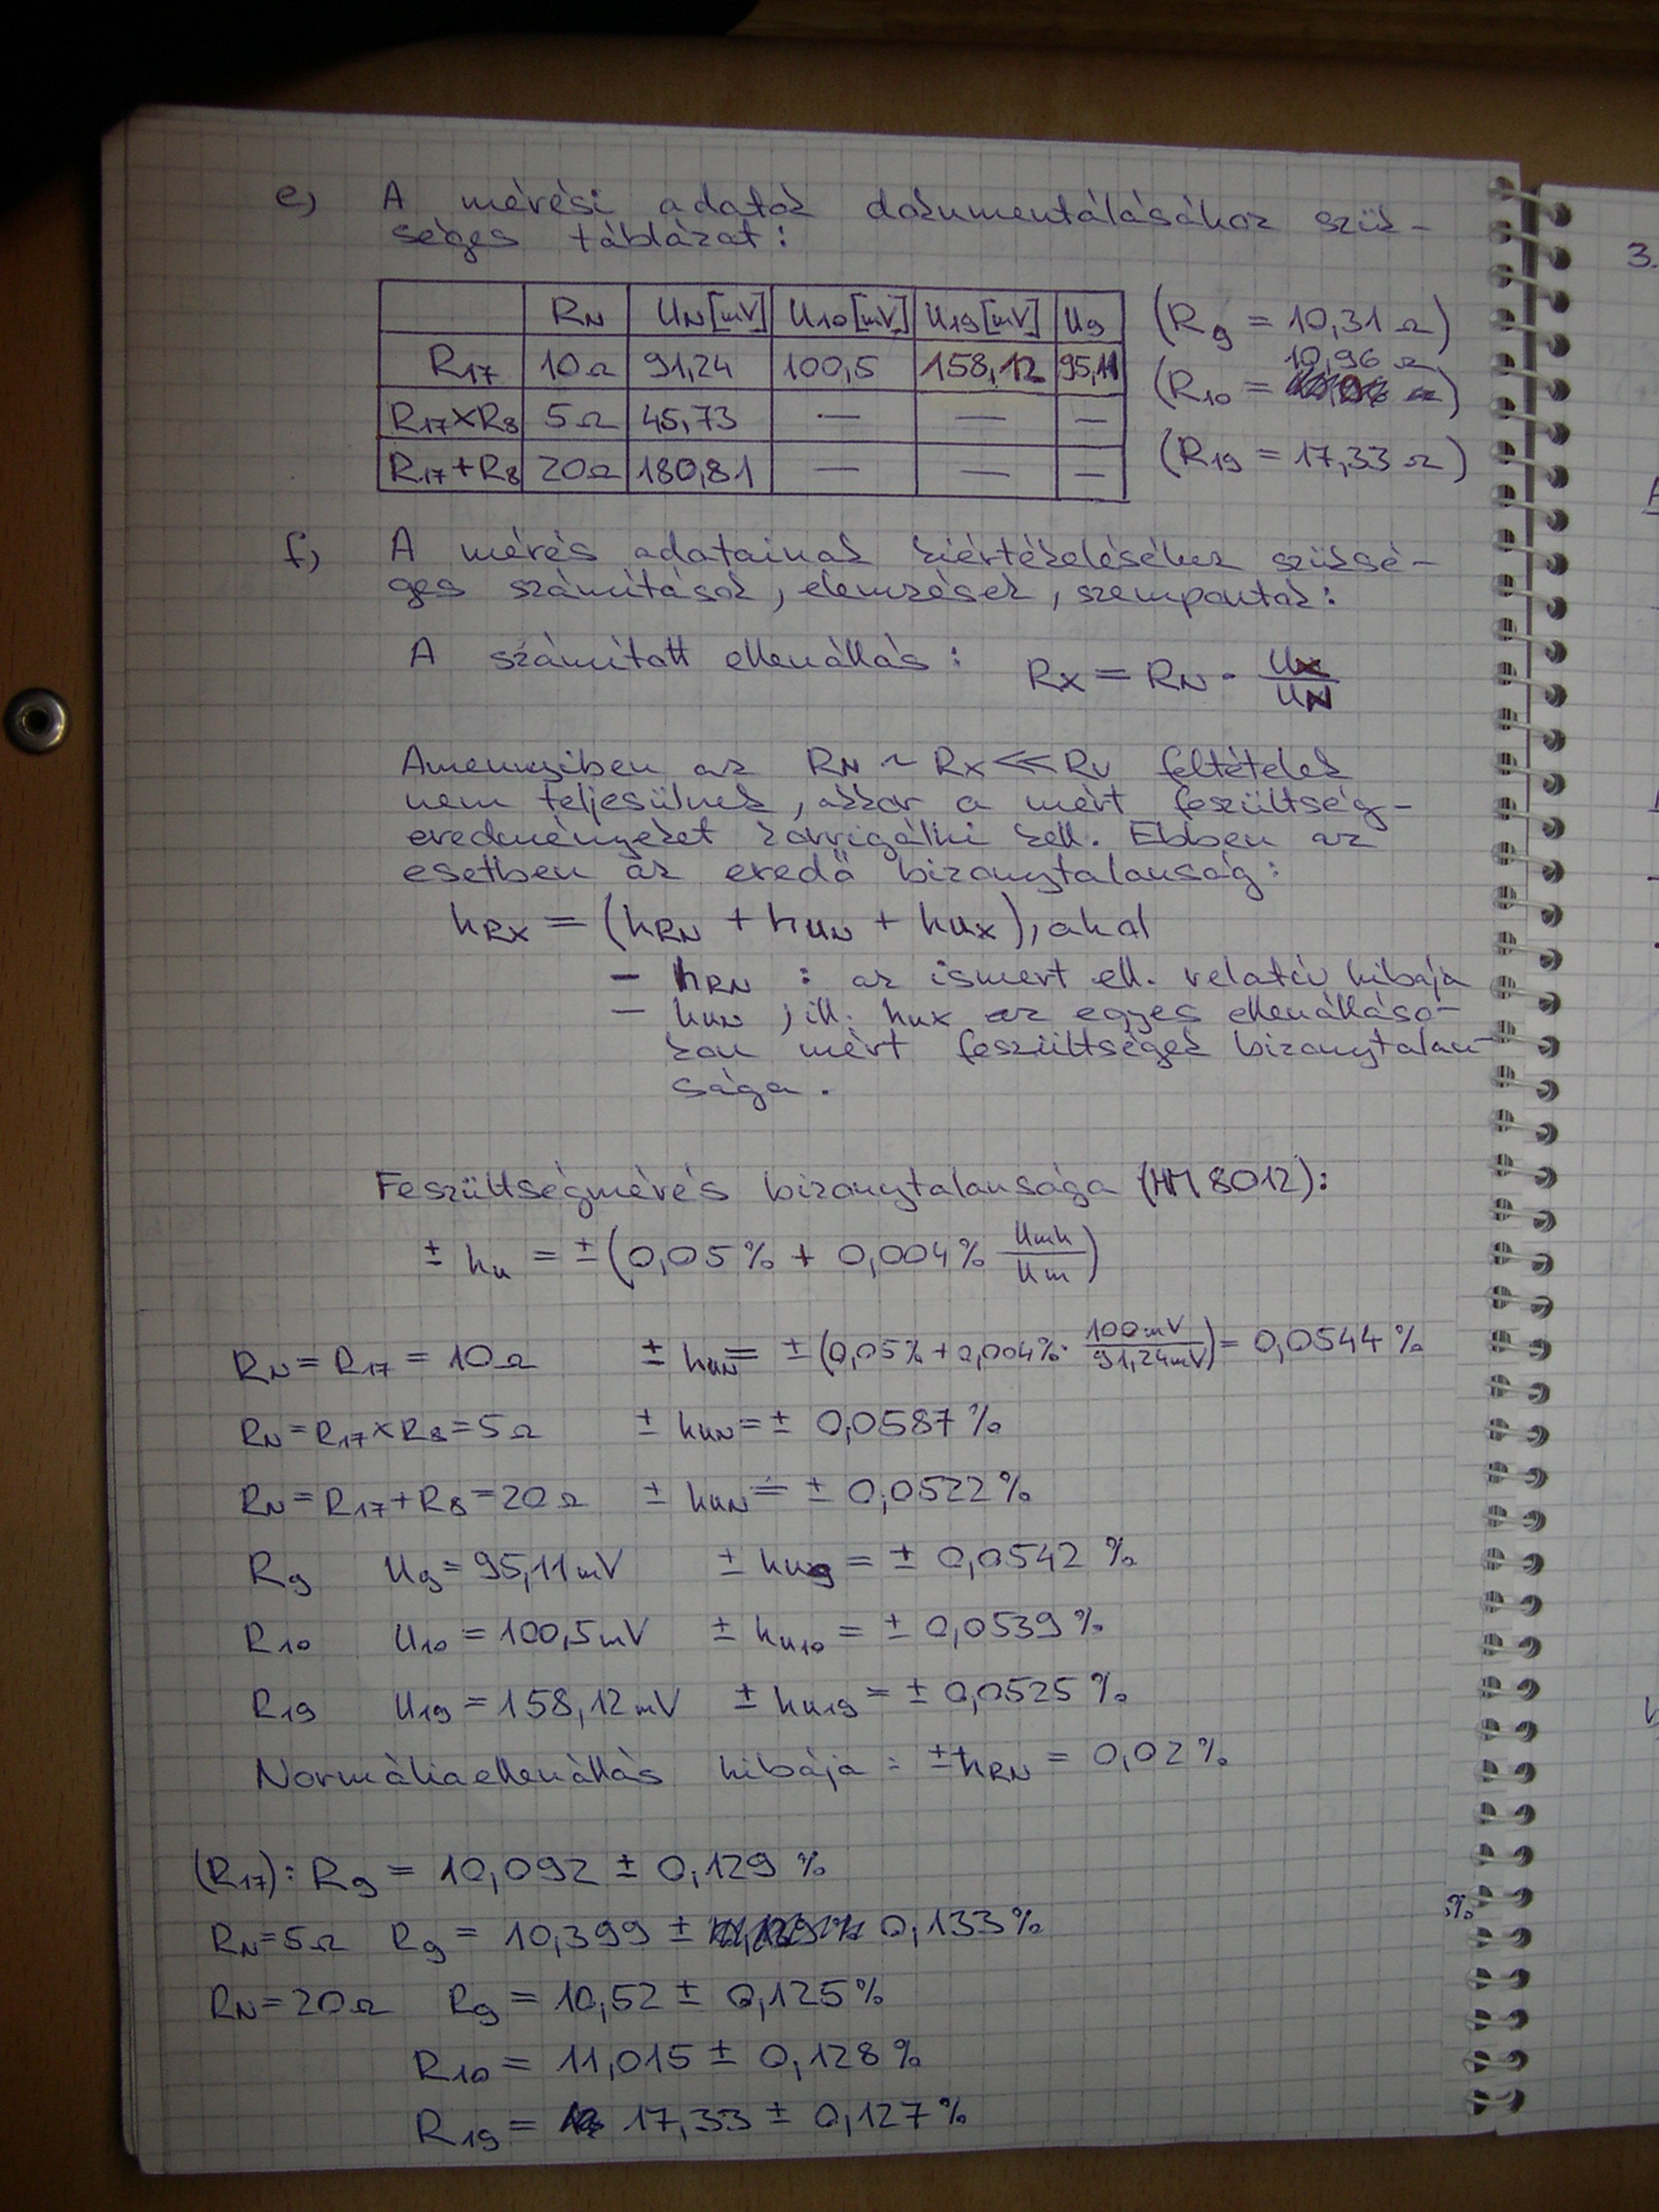 e) A mérési adatok dokumentálásához szük-
séges táblázat:
RN UN[mV] U10[mV] U19[mV] U9
R17 10Ω 91,24 100,5 158,12 95,11
R17xR8 5Ω 45,73 — — —
R17+R8 20Ω 180,81 — — —
(R9 = 10,31 Ω)
10,96 Ω
(R10 = )
(R19 = 17,33 Ω)
f) A mérés adatainak kiértékeléséhez szüksé-
ges számítások, elemzések, szempontok:
A számított ellenállás: RX = RN · UX/UN
Amennyiben az RN ~ RX << RV feltételek
nem teljesülnek, akkor a mért feszültség-
eredményeket korrigálni kell. Ebben az
esetben az eredő bizonytalanság:
hRX = (hRN + hUN + hUX), ahol
- hRN : az ismert ell. relatív hibája
- hUN, ill. hUX az egyes ellenálláso-
kon mért feszültségek bizonytalan-
sága.
Feszültségmérés bizonytalansága (HM 8012):
± hu = ±(0,05% + 0,004% Umh/Um)
RN = R17 = 10Ω ± hUN = ±(0,05% + 0,004% · 100mV/91,24mV) = 0,0544%
RN = R17xR8 = 5Ω ± hUN = ± 0,0587%
RN = R17+R8 = 20Ω ± hUN = ± 0,0522%
R9 U9 = 95,11mV ± hU9 = ± 0,0542 %
R10 U10 = 100,5mV ± hU10 = ± 0,0539%
R19 U19 = 158,12mV ± hU19 = ± 0,0525%
Normáliaellenállás hibája : ±hRN = 0,02%
(R17): R9 = 10,092 ± 0,129 %
RN=5Ω R9 = 10,399 ± 0,133%
RN=20Ω R9 = 10,52 ± 0,125%
R10 = 11,015 ± 0,128%
R19 = 17,33 ± 0,127%
3.
%